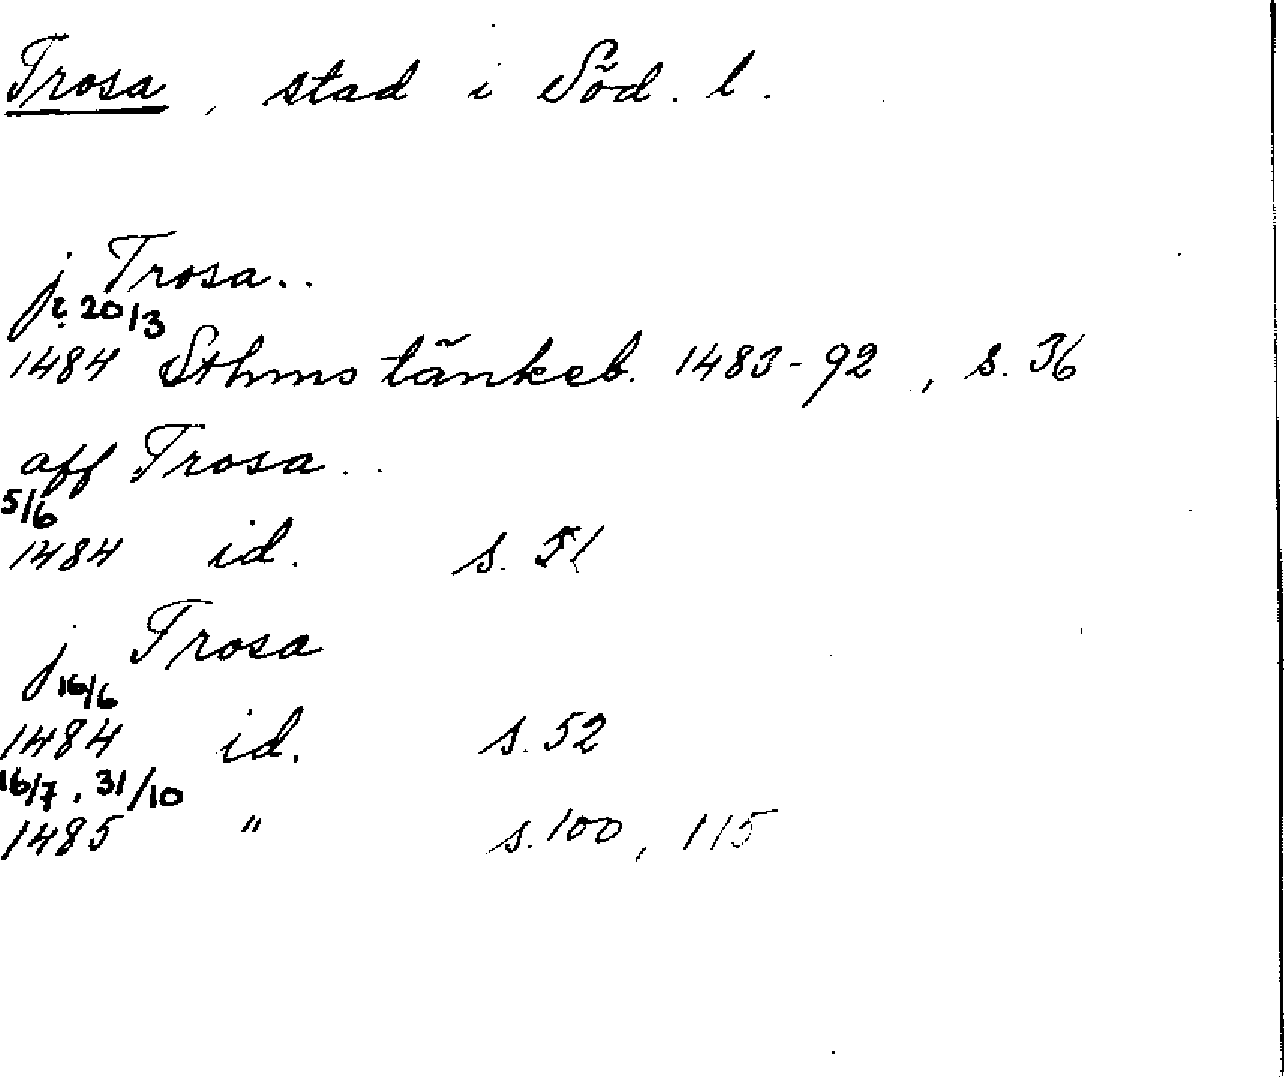 Trosa, stad i Söd. l.
j Trosa..
20/3
1484 Sthms tänkeb. 1483-92, s. 36
aff Trosa..
5/6
1484 id. s. 51
j Trosa
16/6
1484 id. s. 52
16/7, 31/10
1485 " s. 100, 115